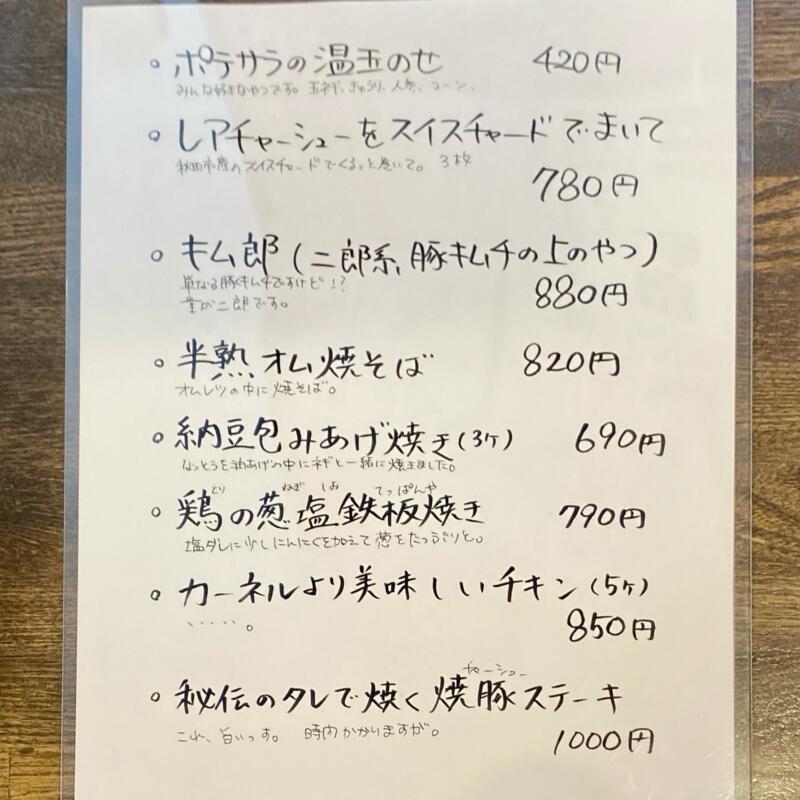 。ポテサラの温玉のせ 420円
みんな好きなやつです。玉ネギ、きゅうり、人参、コーン、
。レアチャーシューをスイスチャードでまいて
秋田市産のスイスチャードでくるっと巻いて。 3枚
780円
。キム郎(二郎系、豚キムチの上のやつ)
単なる豚キムチですけど!?
880円
量が二郎です。
。半熟オム焼そば 820円
オムレツの中に焼そば。
。納豆包みあげ焼き(3ヶ) 690円
なっとうを油あげの中にネギと一緒に焼きました。
とり ねぎ しお てっぱんや
。鶏の葱塩鉄板焼き 790円
塩ダレに少しにんにくを加えて葱をたっぷりと。
。カーネルより美味しいチキン(5ヶ)
・・・・・。
850円
チャーシュー
。秘伝のタレで焼く焼豚ステーキ
これ、旨いっす。 時間かかりますが。
1000円